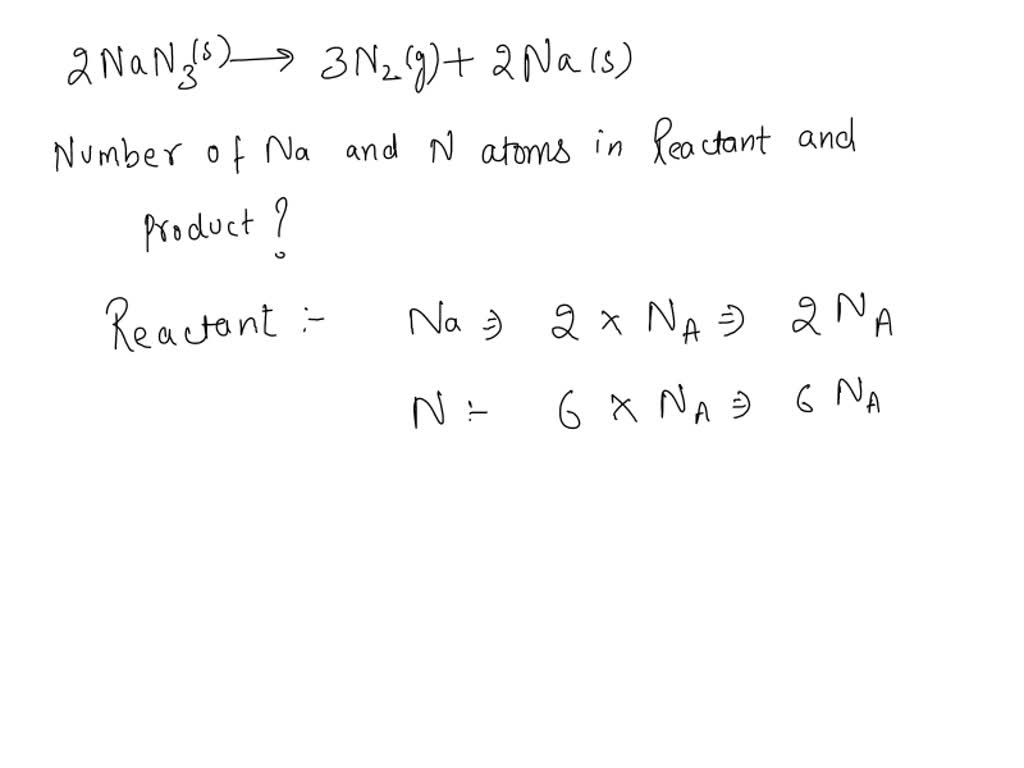 2NaN₃(s) ⟶ 3N₂(g) + 2Na(s)
Number of Na and N atoms in Reactant and
product?
Reactant :- Na ⇒ 2 × N_A ⇒ 2 N_A
N :- 6 × N_A ⇒ 6 N_A